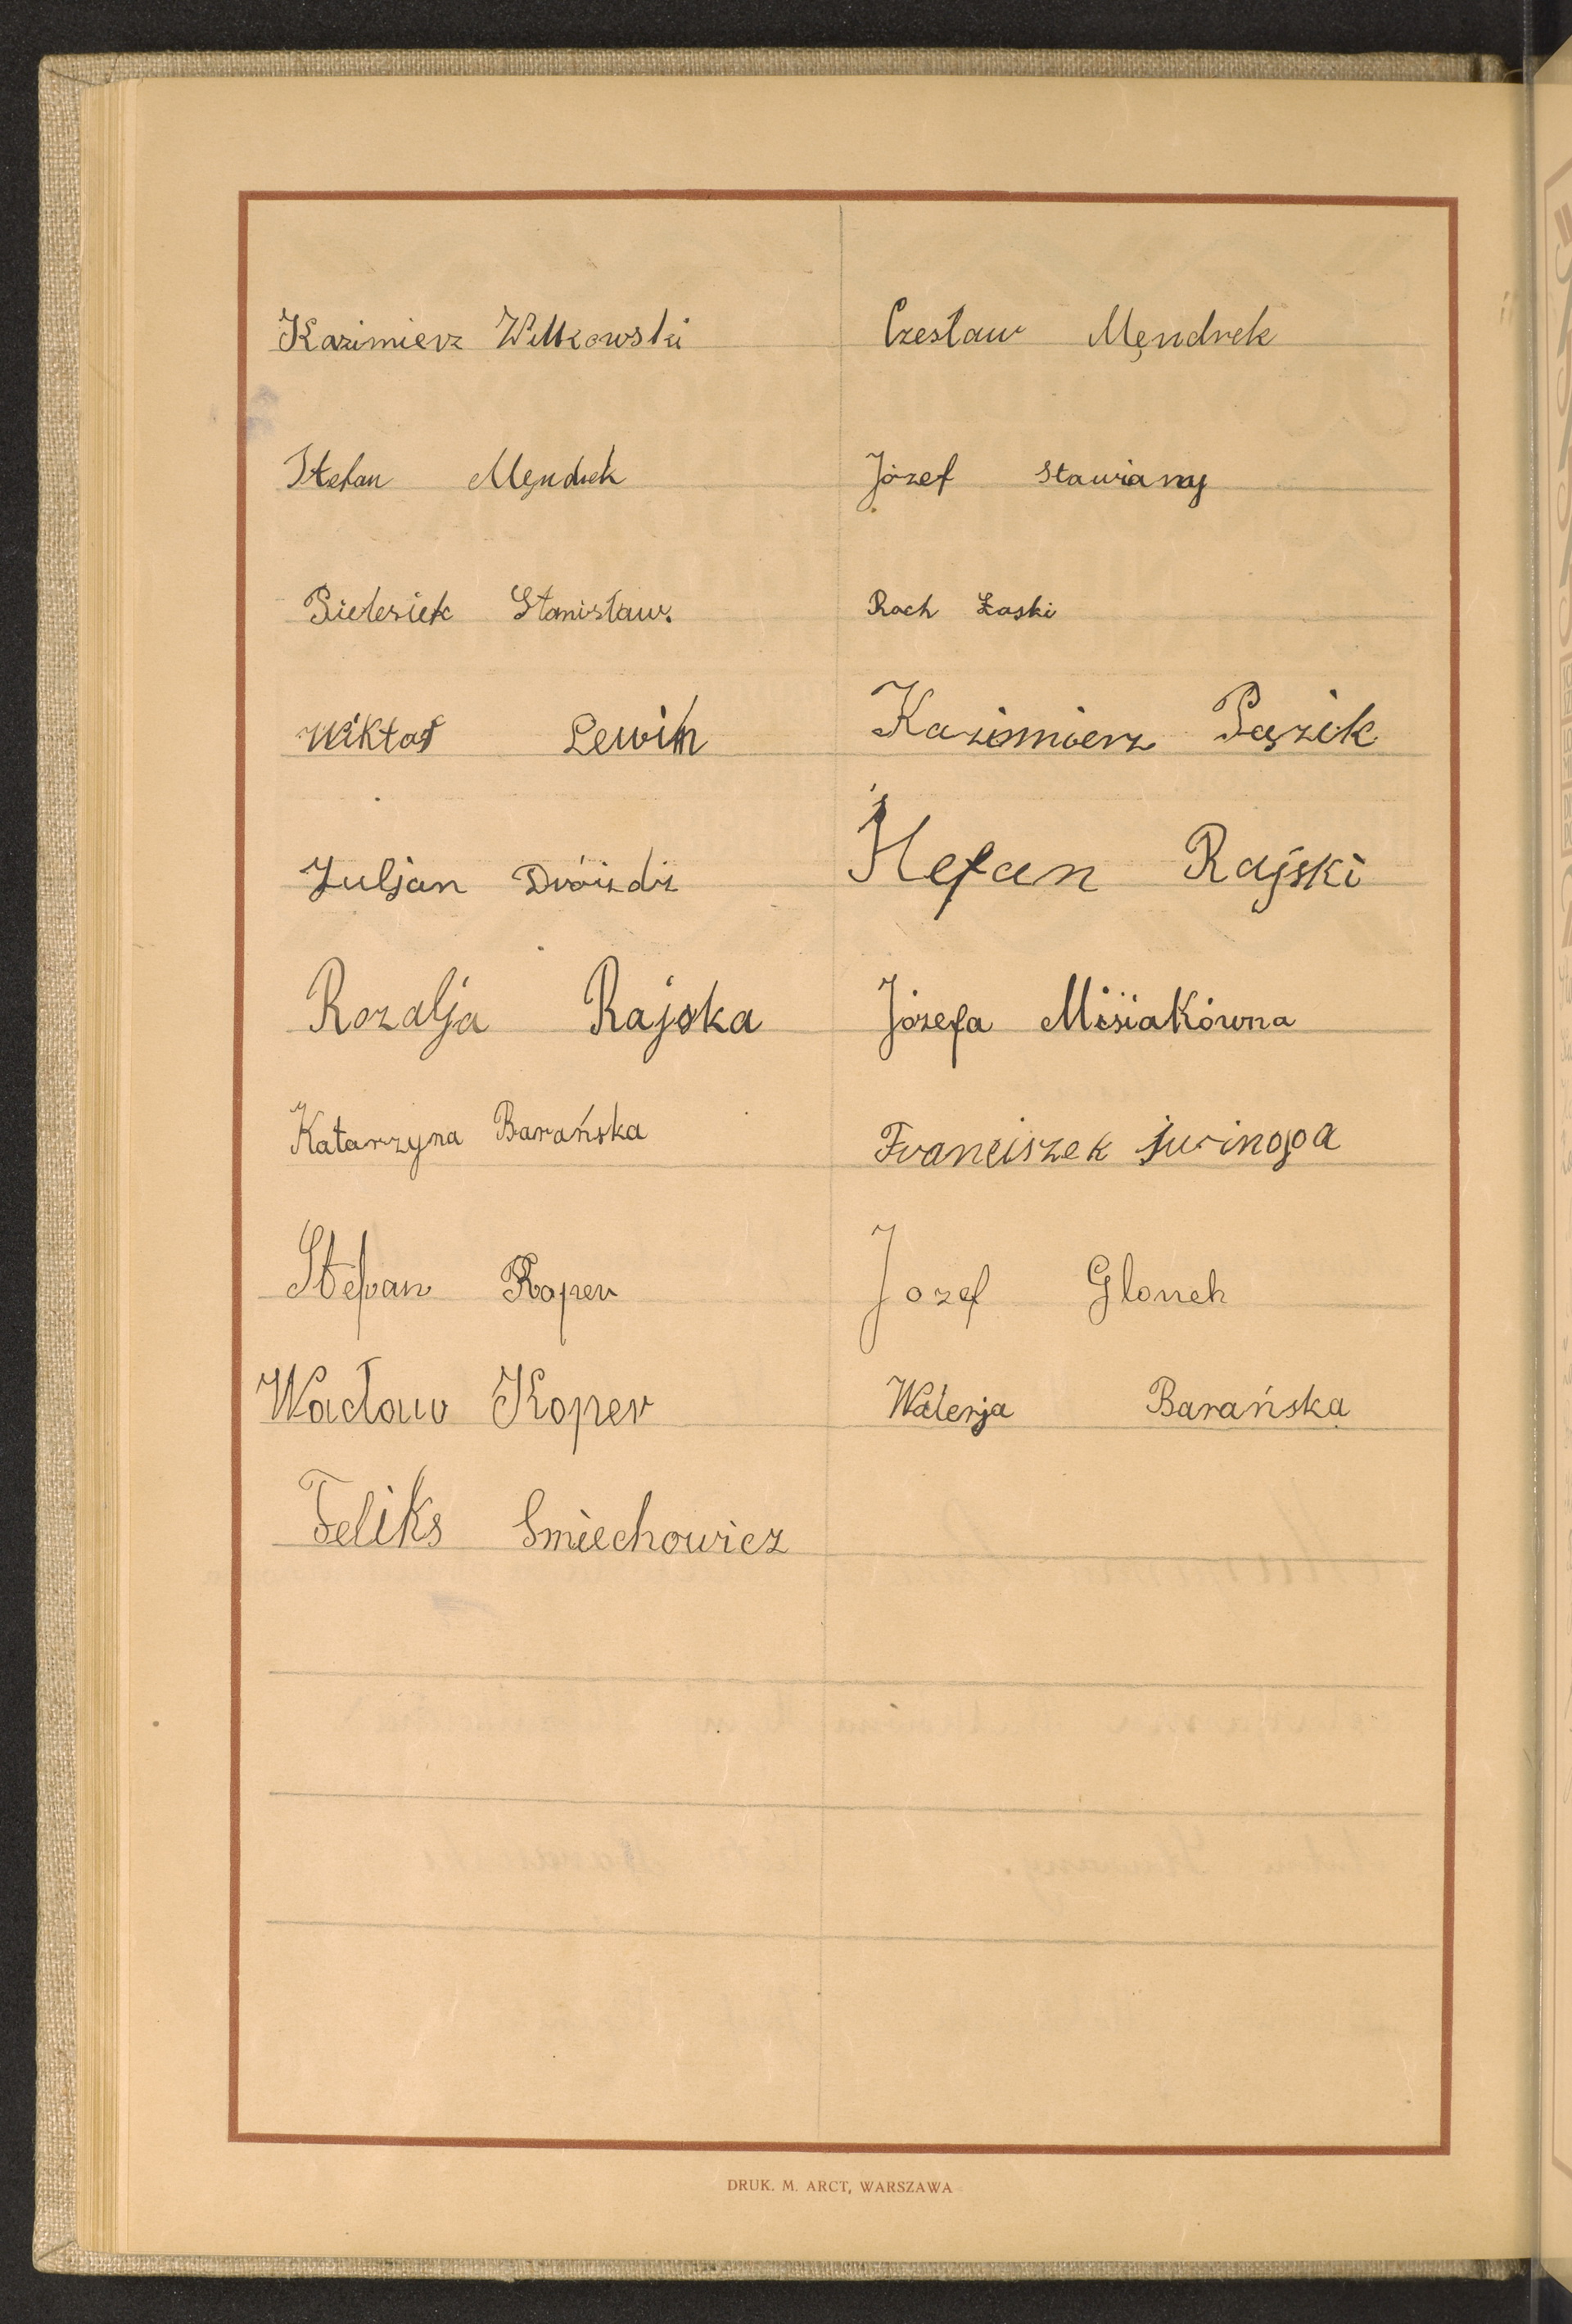 Kazimierz Witkowski
Czesław Męndrek
Stefan Męndrek
Józef Stawiany
Bielesiek Stanisław.
Roch Łaski
Wiktor Lewin
Kazimierz Pązik
Juljan Dróżdż
Stefan Rajski
Rozalja Rajska
Józefa Misiakówna
Katarzyna Barańska
Franciszek
Stefan Koper
Jozef Glonek
Wacław Koper
Walerja Barańska
Feliks Smiechowicz
DRUK. M. ARCT, WARSZAWA